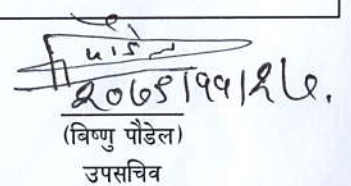 पौडेल
२०७९।११।२७.
(बिष्णु पौडेल)
उपसचिव